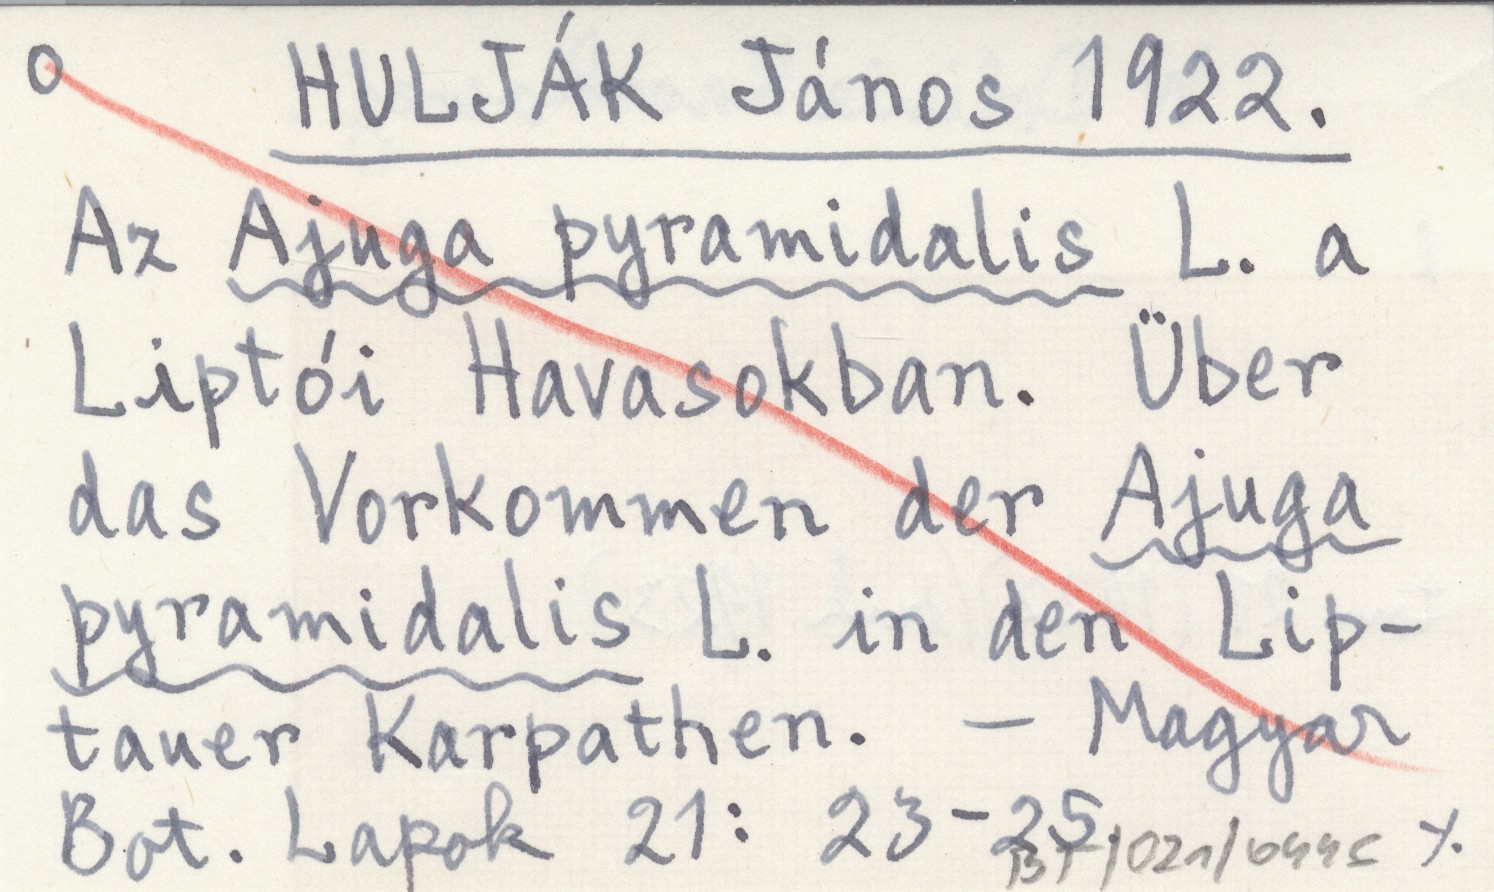 HULJÁK János 1922.
Az Ajuga pyramidalis L. a
Liptói Havasokban. Über
das Vorkommen der Ajuga
pyramidalis L. in den Lip-
tauer Karpathen. – Magyar
Bot. Lapok 21: 23-25.